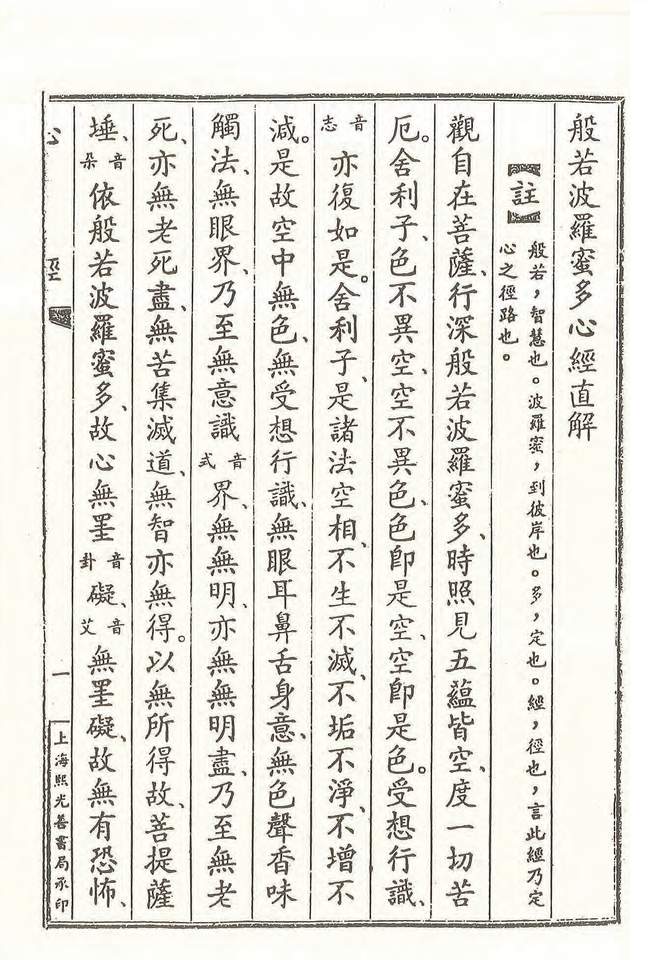 般若波羅蜜多心經直解
【註】般若，智慧也。波羅蜜，到彼岸也。多，定也。經，徑也，言此經乃定
心之徑路也。
觀自在菩薩、行深般若波羅蜜多、時照見五蘊皆空、度一切苦
厄。舍利子、色不異空、空不異色、色卽是空、空卽是色。受想行識、
音志亦復如是。舍利子、是諸法空相、不生不滅、不垢不淨、不增不
減。是故空中無色、無受想行識、無眼耳鼻舌身意、無色聲香味
觸法、無眼界、乃至無意識音式界、無無明、亦無無明盡、乃至無老
死、亦無老死盡、無苦集滅道、無智亦無得。以無所得故、菩提薩
埵、音朵依般若波羅蜜多、故心無罣音卦礙、音艾無罣礙、故無有恐怖、
一
上海熙光善書局承印